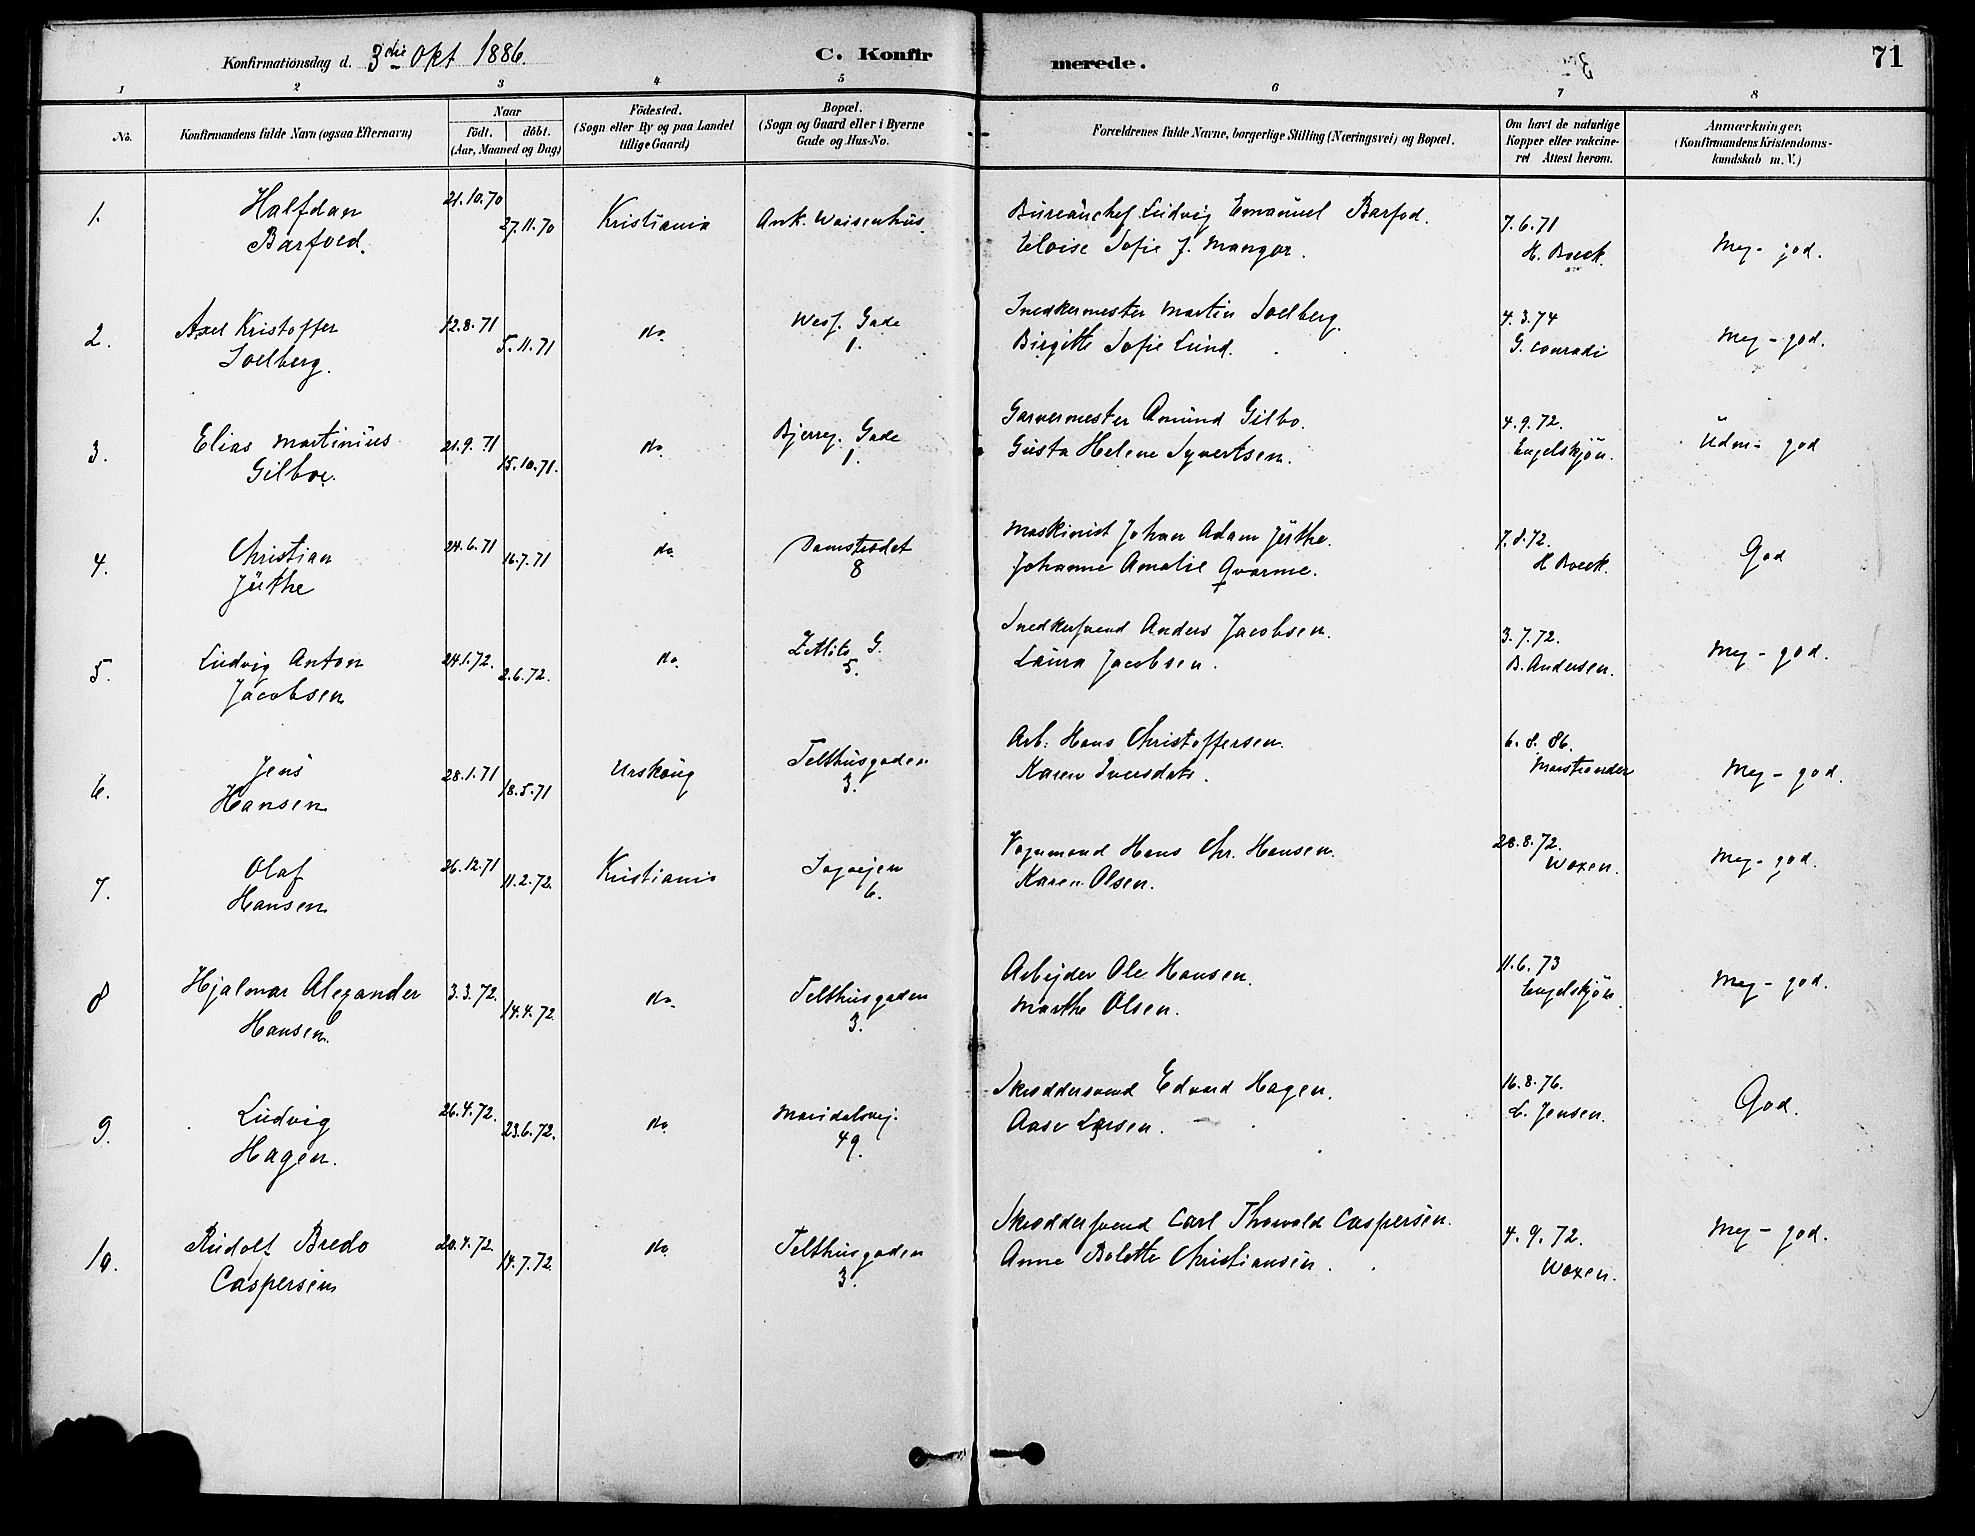 Konfirmationsdag d. 3die Okt 1886.
C. Konfirmerede.
71
1 2 3 4 5 6 7 8
No.
Konfirmandens fulde Navn (ogsaa Efternavn)
Naar
födt. döbt.
(Aar, Maaned og Dag)
Födested.
(Sogn eller By og paa Landet
tillige Gaard)
Bopæl.
(Sogn og Gaard eller i Byerne
Gade og Hus-No.
Forældrenes fulde Navne, borgerlige Stilling (Næringsvei) og Bopæl.
Om havt de naturlige
Kopper eller vakcine-
ret Attest herom.
Anmærkninger.
(Konfirmandens Kristendoms-
kundskab m. V.)
1. Halfdan 21.10.70 27.11.70 Kristiania Ank. Waisenhus. Büreauchef Ludvig Emanuel Barfod. 7.6.71
Barfoed. Eloise Sofie J. Mangor. H. Boeck. Meg- god.
2. Axel Kristoffer 12.8.71 5.11.71 do. Wess. Gade Snedkermester Martin Soelberg. 4.3.74
Soelberg. 1. Birgitte Sofie Lund. G. Conradi Meg- god.
3. Elias Martinius 21.9.71 15.10.71. do. Bjerreg. Gade Garvermester Amund Gilbo. 4.9.72.
Gilboe. 1. Gusta Helene Syvertsen. Engelskjön. Udm- god
4. Christian 24.6.71 16.7.71 do. Damstrædet Maskinist Johan Adam Jüthe. 7.8.72.
Jüthe 8 Johanne Amalie Qvarme. H Boeck. God
5. Ludvig Anton 24.1.72. 2.6.72. do. Zetlitz G. Snedkersvend Anders Jacobsen. 3.7.72.
Jacobsen 5. Laura Jacobsen. B. Andersen. Meg- god.
6. Jens 28.1.71 18.5.71 Urskoug Telthusgaden Arb: Hans Christoffersen. 6.8.86.
Hansen 3. Karen Iversdatr. Marstrander Meg- god.
7. Olaf 26.12.71 11.2.72. Kristiania Sagvejen Vognmand Hans Chr. Hansen. 28.8.72.
Hansen 6. Karen Olsen. Woxen. Meg- god.
8 Hjalmar Alexander 3.3.72. 14.4.72. do. Telthusgaden Arbejder Ole Hansen. 11.6.73
Hansen. 3. Marthe Olsen. Engelskjön. Meg- god.
9. Ludvig 26.4.72. 23.6.72. do. Maridalsvej. Skræddersvend Edvard Hagen. 16.8.76.
Hagen. 49. Aase Larsen. C. Jensen. God.
10. Rudolf Bredo 20.4.72. 14.7.72. do. Telthusgaden Skræddersvend Carl Thorvald Caspersen. 4.9.72.
Caspersen 3. Anne Bolette Christiansen. Woxen. Meg- god.